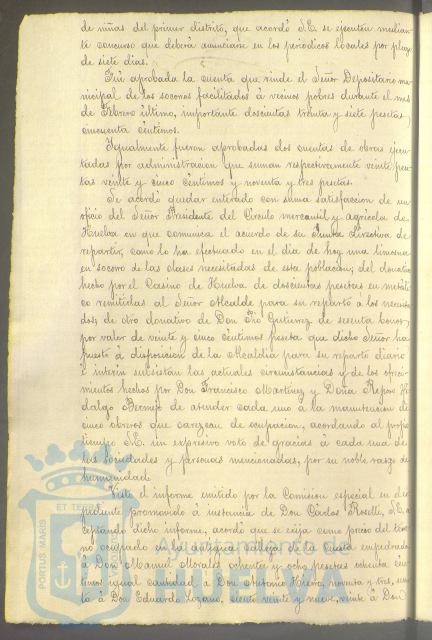 de niñas del primer distrito, que acordó S.E. se ejecuten median-
te concurso que deberá anunciarse en los periódicos locales por plazo
de siete dias.
Fué aprobada la cuenta que rinde el Señor Depositario mu-
nicipal de los socorros facilitados á vecinos pobres durante el mes
de Febrero último, importante doscientas treinta y siete pesetas
cincuenta céntimos.
Igualmente fueron aprobadas dos cuentas de obras ejecu-
tadas por administracion que suman respectivamente veinte pese-
tas veinte y cinco céntimos y noventa y tres pesetas.
Se acordó quedar enterado con suma satisfaccion de un
oficio del Señor Presidente del Circulo mercantil y agricola de
Huelva en que comunica el acuerdo de su Junta directiva de
repartir, como lo ha efectuado en el dia de hoy, una limosna
en socorro de las clases necesitadas de esta poblacion; del donativo
hecho por el Casino de Huelva de doscientas pesetas en metáli-
co remitidas al Señor Alcalde para su reparto á los necesita-
dos; de otro donativo de Don Pío Gutierrez de sesenta bonos
por valor de veinte y cinco céntimos peseta que dicho Señor ha
puesto á disposicion de la Alcaldia para su reparto diario
é interin subsistan las actuales circunstancias y de los ofreci-
mientos hechos por Don Francisco Martinez y Doña Hi-
dalgo Bermejo de atender cada uno á la manutencion de
cinco obreros que carezcan de ocupacion, acordando al propio
tiempo S.E. un expresivo voto de gracias á cada una de
las sociedades y personas mencionadas, por su noble rasgo de
humanidad.
Visto el informe emitido por la Comision especial en el ex-
pediente promovido á instancia de Don Cárlos Roselló, S.E. a-
ceptando dicho informe, acordó que se exija como precio del terre-
no ocupado en la antigua calleja de la Cuesta empedrada
á Don Manuel Morales ochenta y ocho pesetas ochenta cén-
timos; igual cantidad á Don Antonio noventa y tres,
á Don Eduardo Lozano, ciento veinte y nueve, veinte á Don
PORTUS MARIS ET TERRAE
Ayuntamiento de
HUELVA